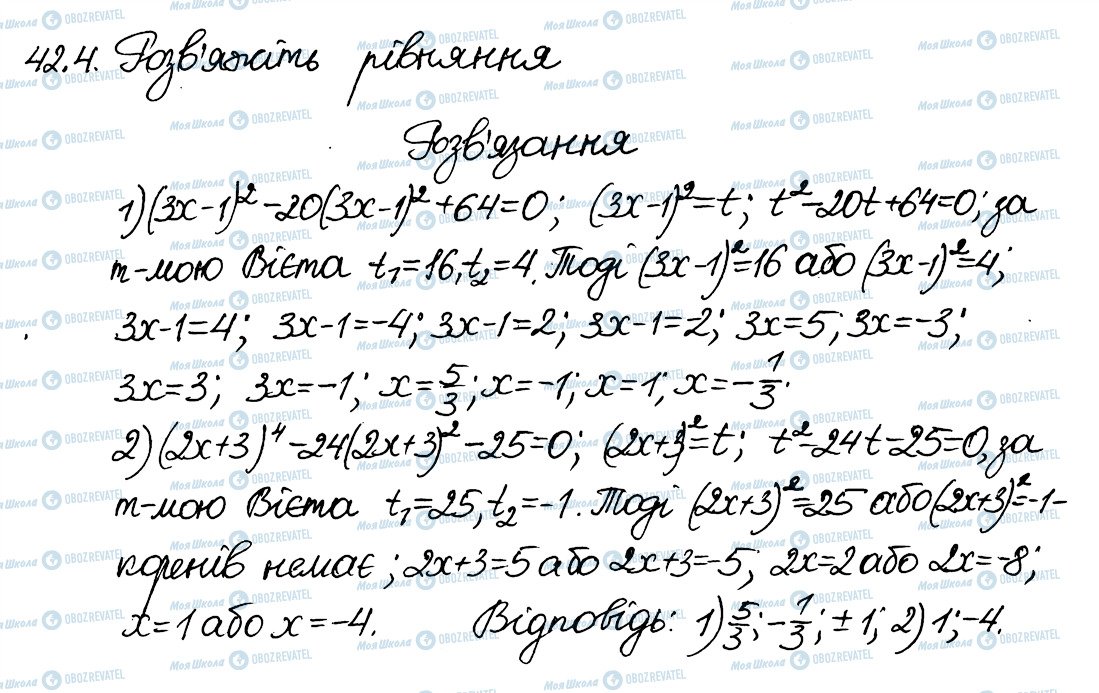 42.4. Розв'яжіть рівняння
Розв'язання
1) (3x-1)² -20(3x-1)² +64=0; (3x-1)²=t; t²-20t+64=0; за
т-мою Вієта t₁=16, t₂=4. Тоді (3x-1)²=16 або (3x-1)²=4;
3x-1=4; 3x-1=-4; 3x-1=2; 3x-1=-2; 3x=5; 3x=-3;
3x=3; 3x=-1; x=5/3; x=-1; x=1; x=-1/3.
2) (2x+3)⁴-24(2x+3)²-25=0; (2x+3)²=t; t²-24t-25=0, за
т-мою Вієта t₁=25, t₂=-1. Тоді (2x+3)²=25 або (2x+3)²=-1-
коренів немає; 2x+3=5 або 2x+3=-5; 2x=2 або 2x=-8;
x=1 або x=-4. Відповідь: 1) 5/3; -1/3; ±1; 2) 1; -4.